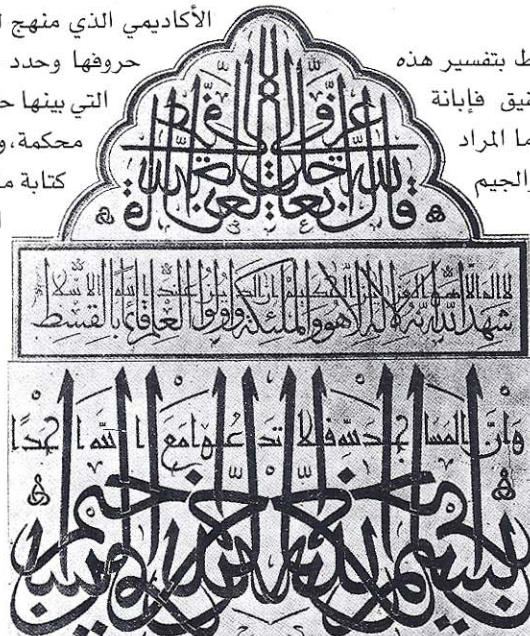 الأكاديمي الذي منهج
ط بتفسير هذه
حروفها وحدد
نيق فإبانة
التي بينها
ما المراد
محكمة، و
الجيم
كتابة
شهد الله أنه لا إله إلا هو والملئكة وأولوا العلم قائما بالقسط
لا إله إلا هو العزيز الحكيم إن الدين عند الله الاسلام
وأن المساجد لله فلا تدعوا مع الله أحدا
بسم الله الرحمن الرحيم